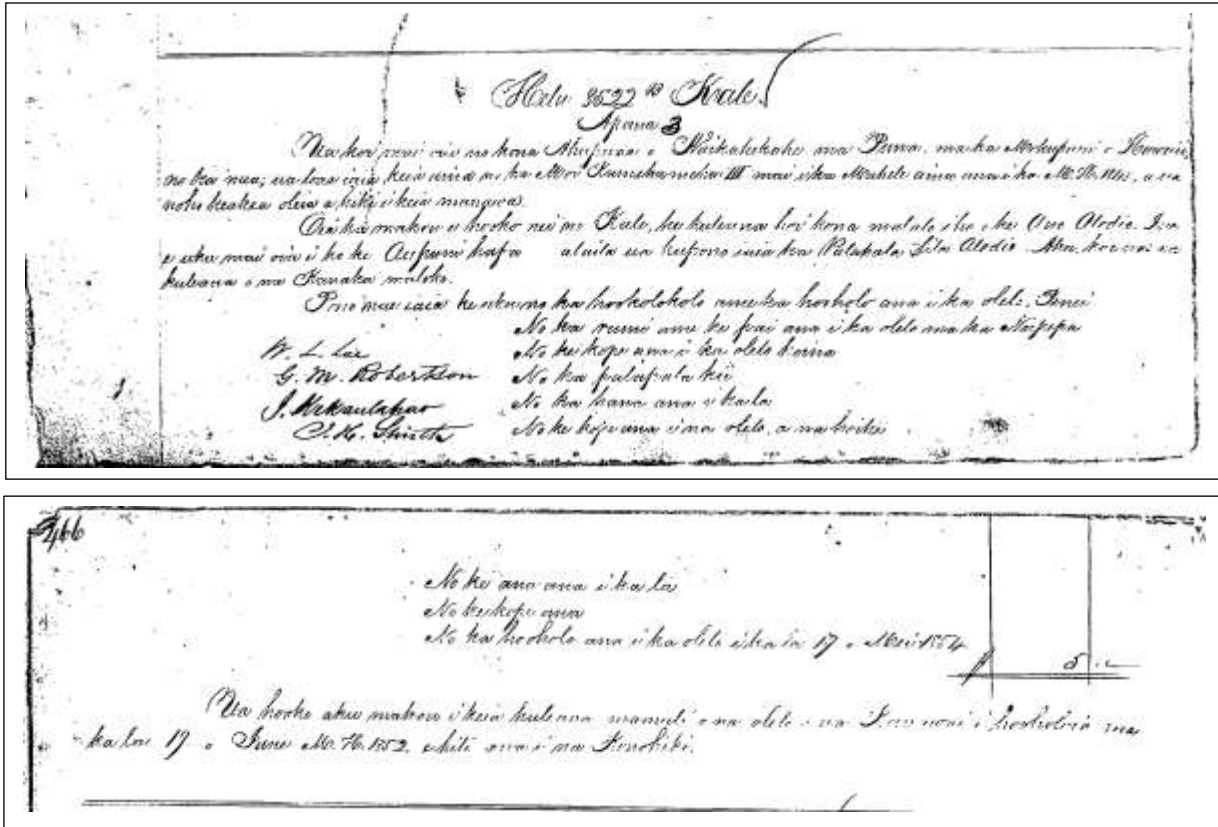 Helu 8522 B Kale.
Apana 3
Ua koi mai oia no kona Ahupuaa o Waikahekahe ma Puna, ma ka Mokupuni o Hawaii,
no ka mea, ua loaa iaia keia aina no ka Moi Kamehameha III mai i ka Mahele aina ana i ka M.H. a ua
noho keakea oleia a hiki i keia manawa.
Oia ka makou e hooko nei no Kale, he kuleana koi kona malalo iho o ke Ano Alodio. Ina
e uku mai oia i ko ke Aupuni hapa alaila ua kupono iaia ka Palapala Sila Alodio. Aka, koe nae na
kuleana o na Kanaka maloko.
Pono nae iaia ke uku no ka hookolokolo ame ka hooholo ana i ka olelo. Penei
No ka rumi ame ke pai ana i ka olelo ma ka Nupepa
W. L. Lee No ke kope ana i ka olelo
G. M. Robertson No ka palapala kii
J. Kekaulahao No ka hana ana i ka la
J. H. Smith No ke kope ana i na olelo, a na hoike
466
No ke ana ana i ka la
No ke kope ana
No ka hooholo ana i ka olelo i ka la 17 o Mei 1854
5
Ua hooko aku makou i keia kuleana mamuli o na olelo a na i hooholoia ma
ka la 19 o June M.H. 1852, e hiki ana i na Konohiki.